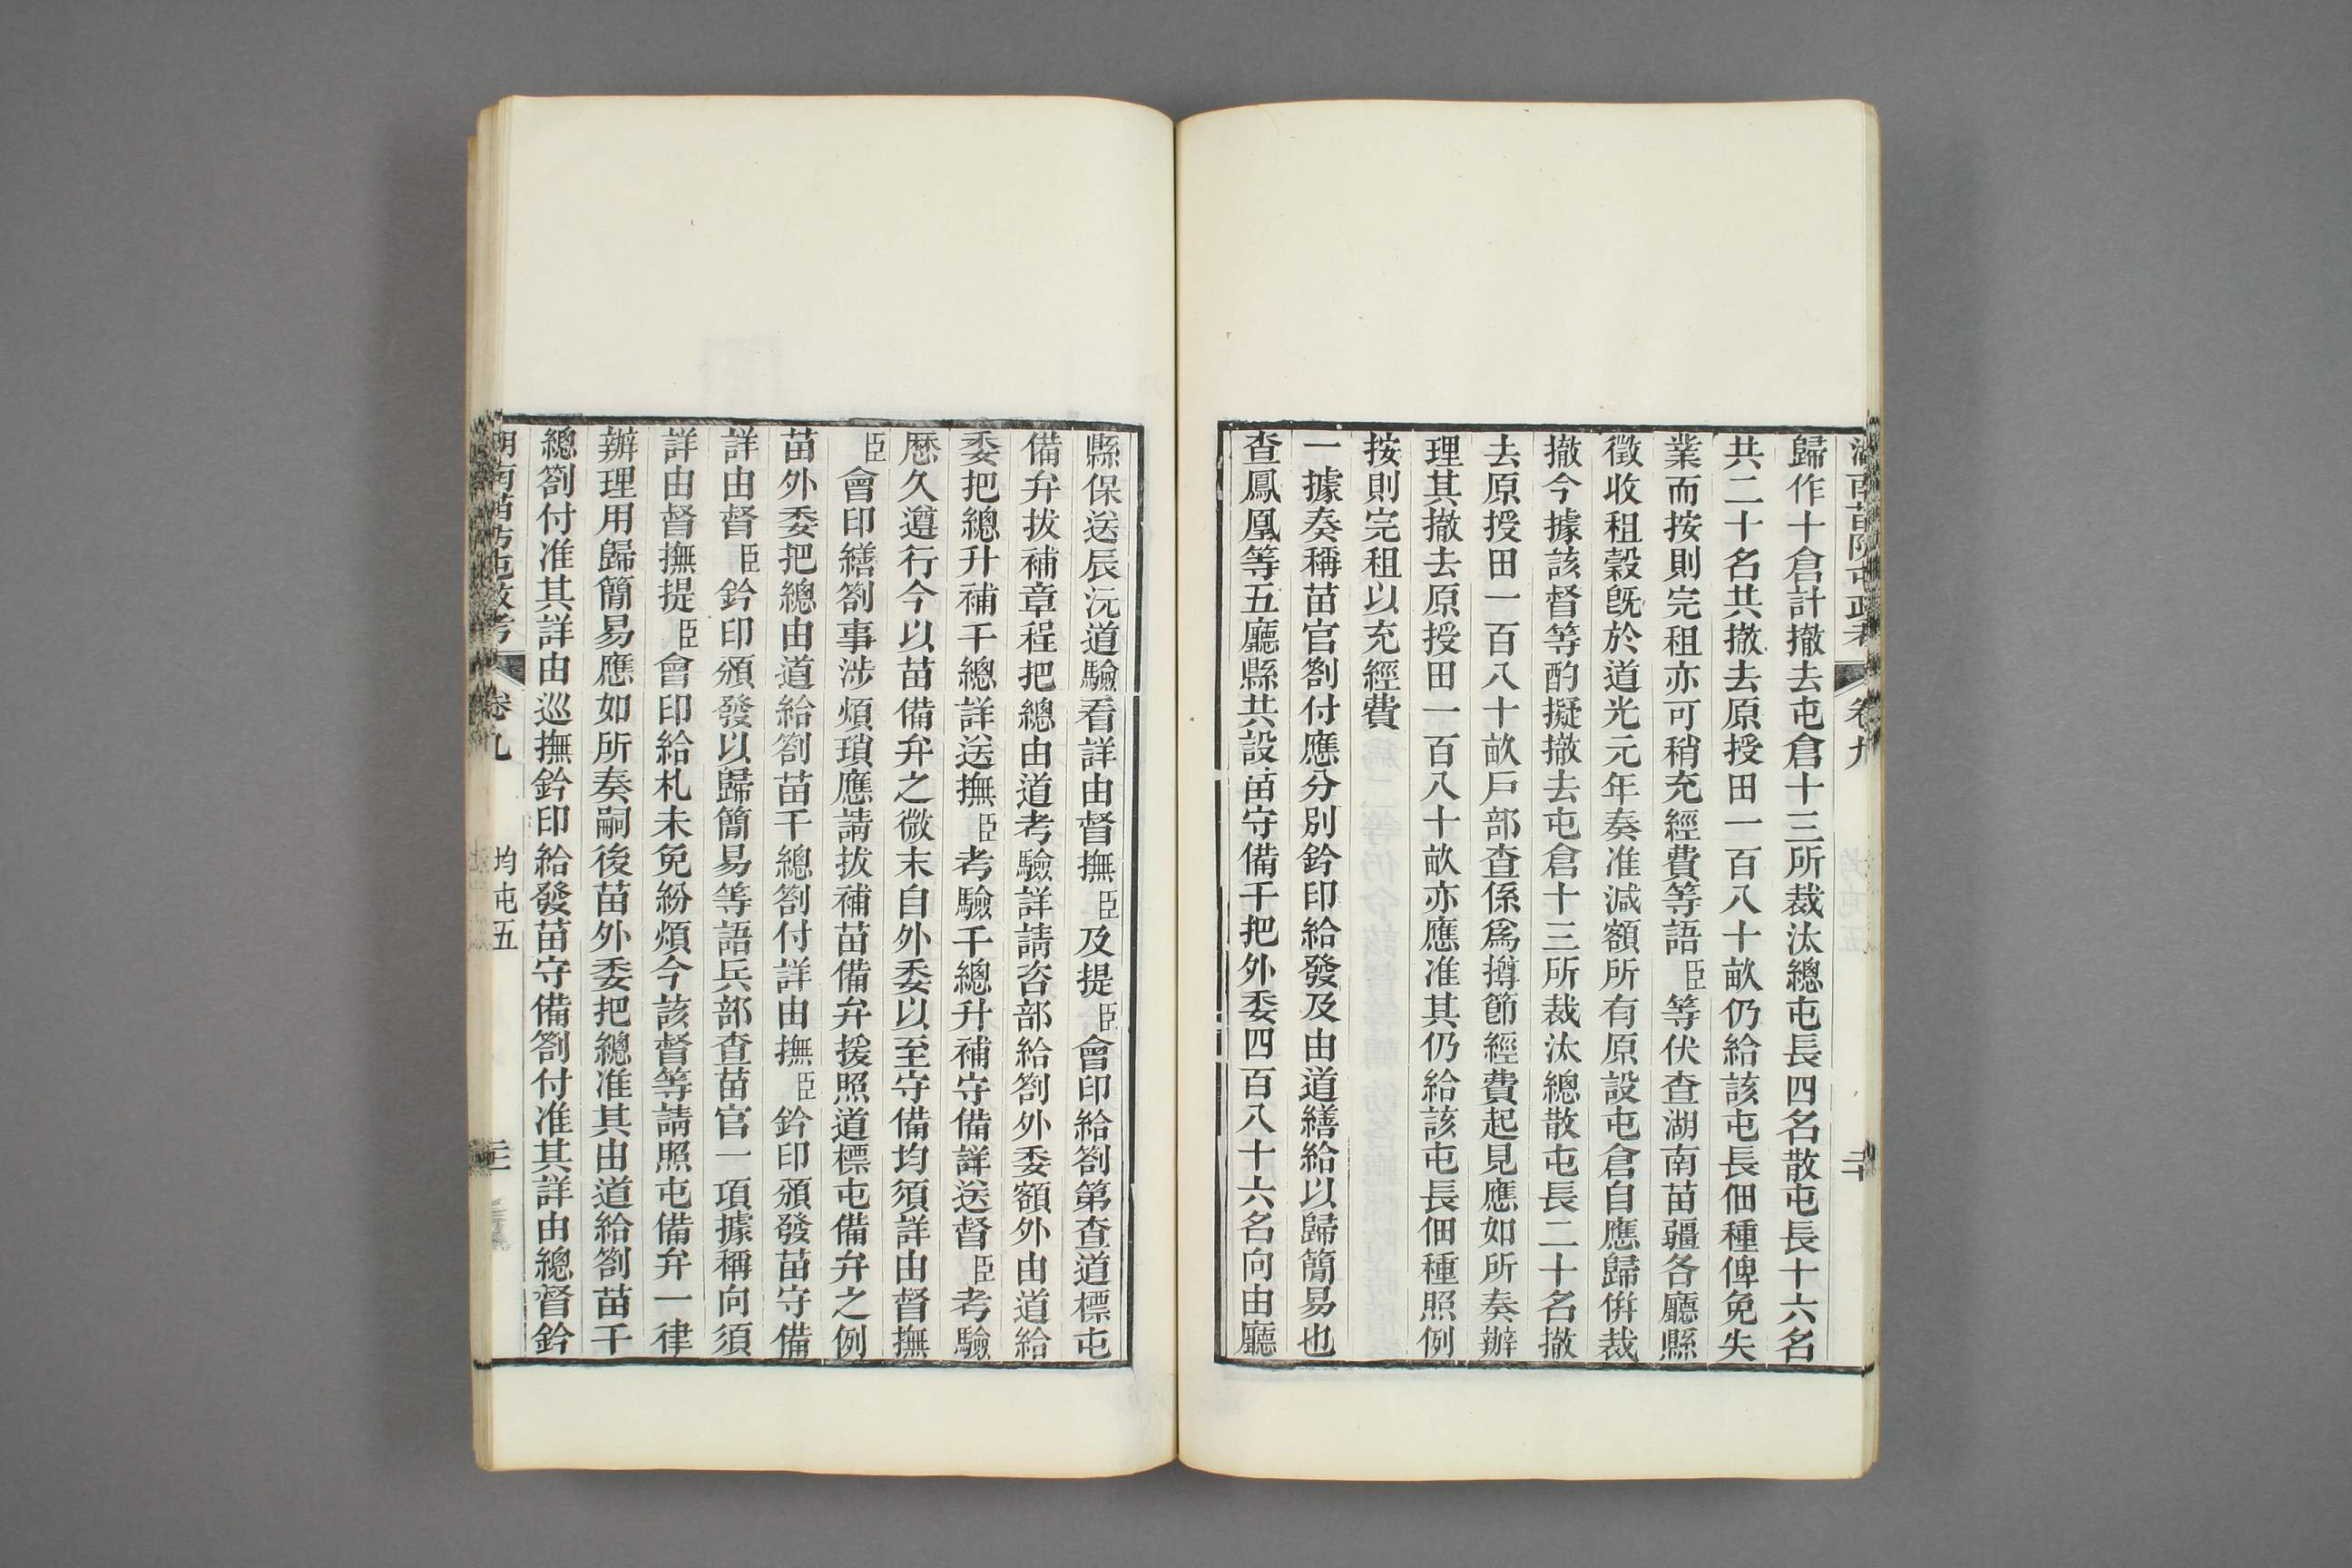 湖南苗防屯政考 卷九 二十
歸作十倉計撤去屯倉十三所裁汰總屯長四名散屯長十六名
共二十名其撤去原授田一百八十畝仍給該屯長佃種俾免失
業而按則完租亦可稍充經費等語臣等伏查湖南苗疆各廳縣
徵收租穀旣於道光元年奏准減額所有原設屯倉自應歸併裁
撤今據該督等酌擬撤去屯倉十三所裁汰總散屯長二十名撤
去原授田一百八十畝戶部查係爲撙節經費起見應如所奏辦
理其撤去原授田一百八十畝亦應准其仍給該屯長佃種照例
按則完租以充經費
一據奏稱苗官劄付應分別鈐印給發及由道繕給以歸簡易也
查鳳凰等五廳縣共設苗守備千把外委四百八十六名向由廳
縣保送辰沅道驗看詳由督撫臣及提臣會印給劄第查道標屯
備弁拔補章程把總由道考驗詳請咨部給劄外委額外由道給
委把總升補千總詳送撫臣考驗千總升補守備詳送督臣考驗
歷久遵行今以苗備弁之微末自外委以至守備均須詳由督撫
臣會印繕劄事涉煩瑣應請拔補苗備弁援照道標屯備弁之例
苗外委把總由道給劄苗千總劄付詳由撫臣鈐印頒發苗守備
詳由督臣鈐印頒發以歸簡易等語兵部查苗官一項據稱向須
詳由督撫提臣會印給札未免紛煩今該督等請照屯備弁一律
辦理用歸簡易應如所奏嗣後苗外委把總准其由道給劄苗千
總劄付准其詳由巡撫鈐印給發苗守備劄付准其詳由總督鈐
湖南苗防屯政考 卷九 均屯五